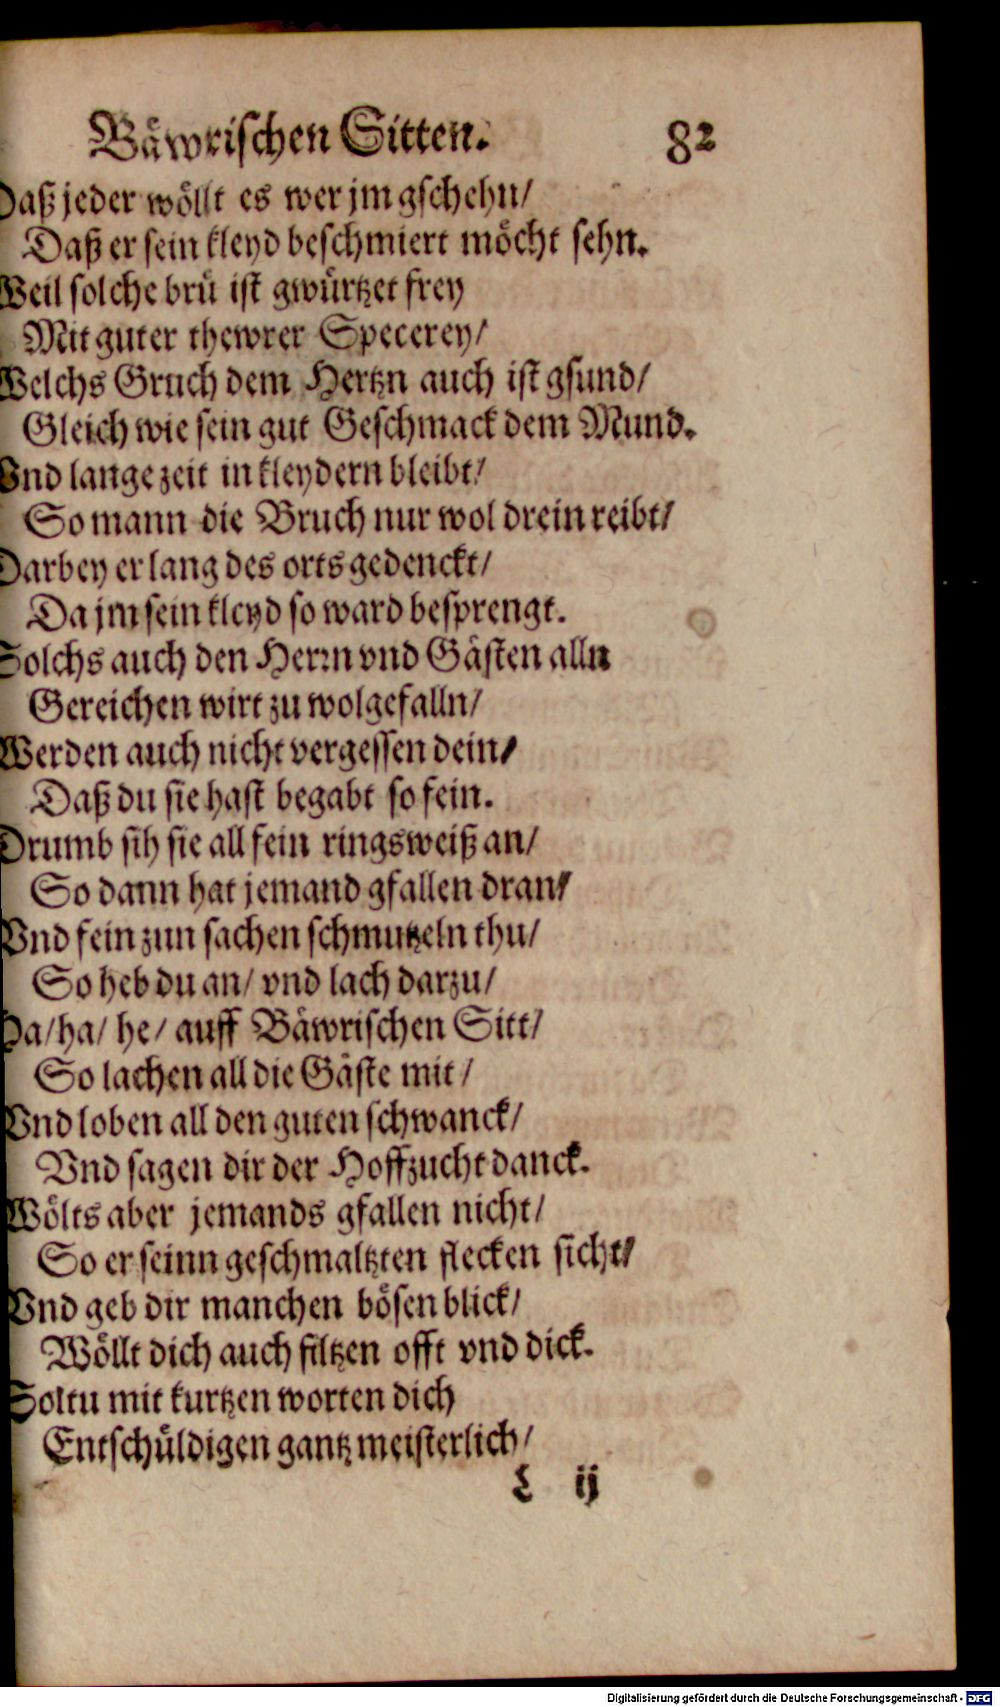 Bäwrischen Sitten. 82
Daß jeder wöllt es wer jm gschehn/
Daß er sein kleyd beschmiert möcht sehn.
Weil solche brü ist gwürtzet frey
Mit guter thewrer Specerey/
Welchs Gruch dem Hertzn auch ist gsund/
Gleich wie sein gut Geschmack dem Mund.
Vnd lange zeit in kleydern bleibt/
So mann die Bruch nur wol drein reibt/
Darbey er lang des orts gedenckt/
Da jm sein kleyd so ward besprengt.
Solchs auch den Herrn vnd Gästen alln
Gereichen wirt zu wolgefalln/
Werden auch nicht vergessen dein/
Daß du sie hast begabt so fein.
Drumb sih sie all fein ringsweiß an/
So dann hat jemand gfallen dran/
Vnd fein zun sachen schmutzeln thu/
So heb du an/ vnd lach darzu/
Ha/ha/ he/ auff Bäwrischen Sitt/
So lachen all die Gäste mit/
Vnd loben all den guten schwanck/
Vnd sagen dir der Hoffzucht danck.
Wölts aber jemands gfallen nicht/
So er seinn geschmaltzten flecken sicht/
Vnd geb dir manchen bösen blick/
Wöllt dich auch filtzen offt vnd dick.
Soltu mit kurtzen worten dich
Entschüldigen gantz meisterlich/
L ij
Digitalisierung gefördert durch die Deutsche Forschungsgemeinschaft - DFG